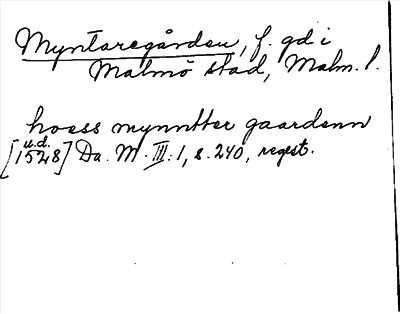 Myntaregården, f. gd i
Malmö stad, Malm. l.
hoess mynntter gaardenn
u.d.
[1528] Da. M. III:1, s. 240, regest.